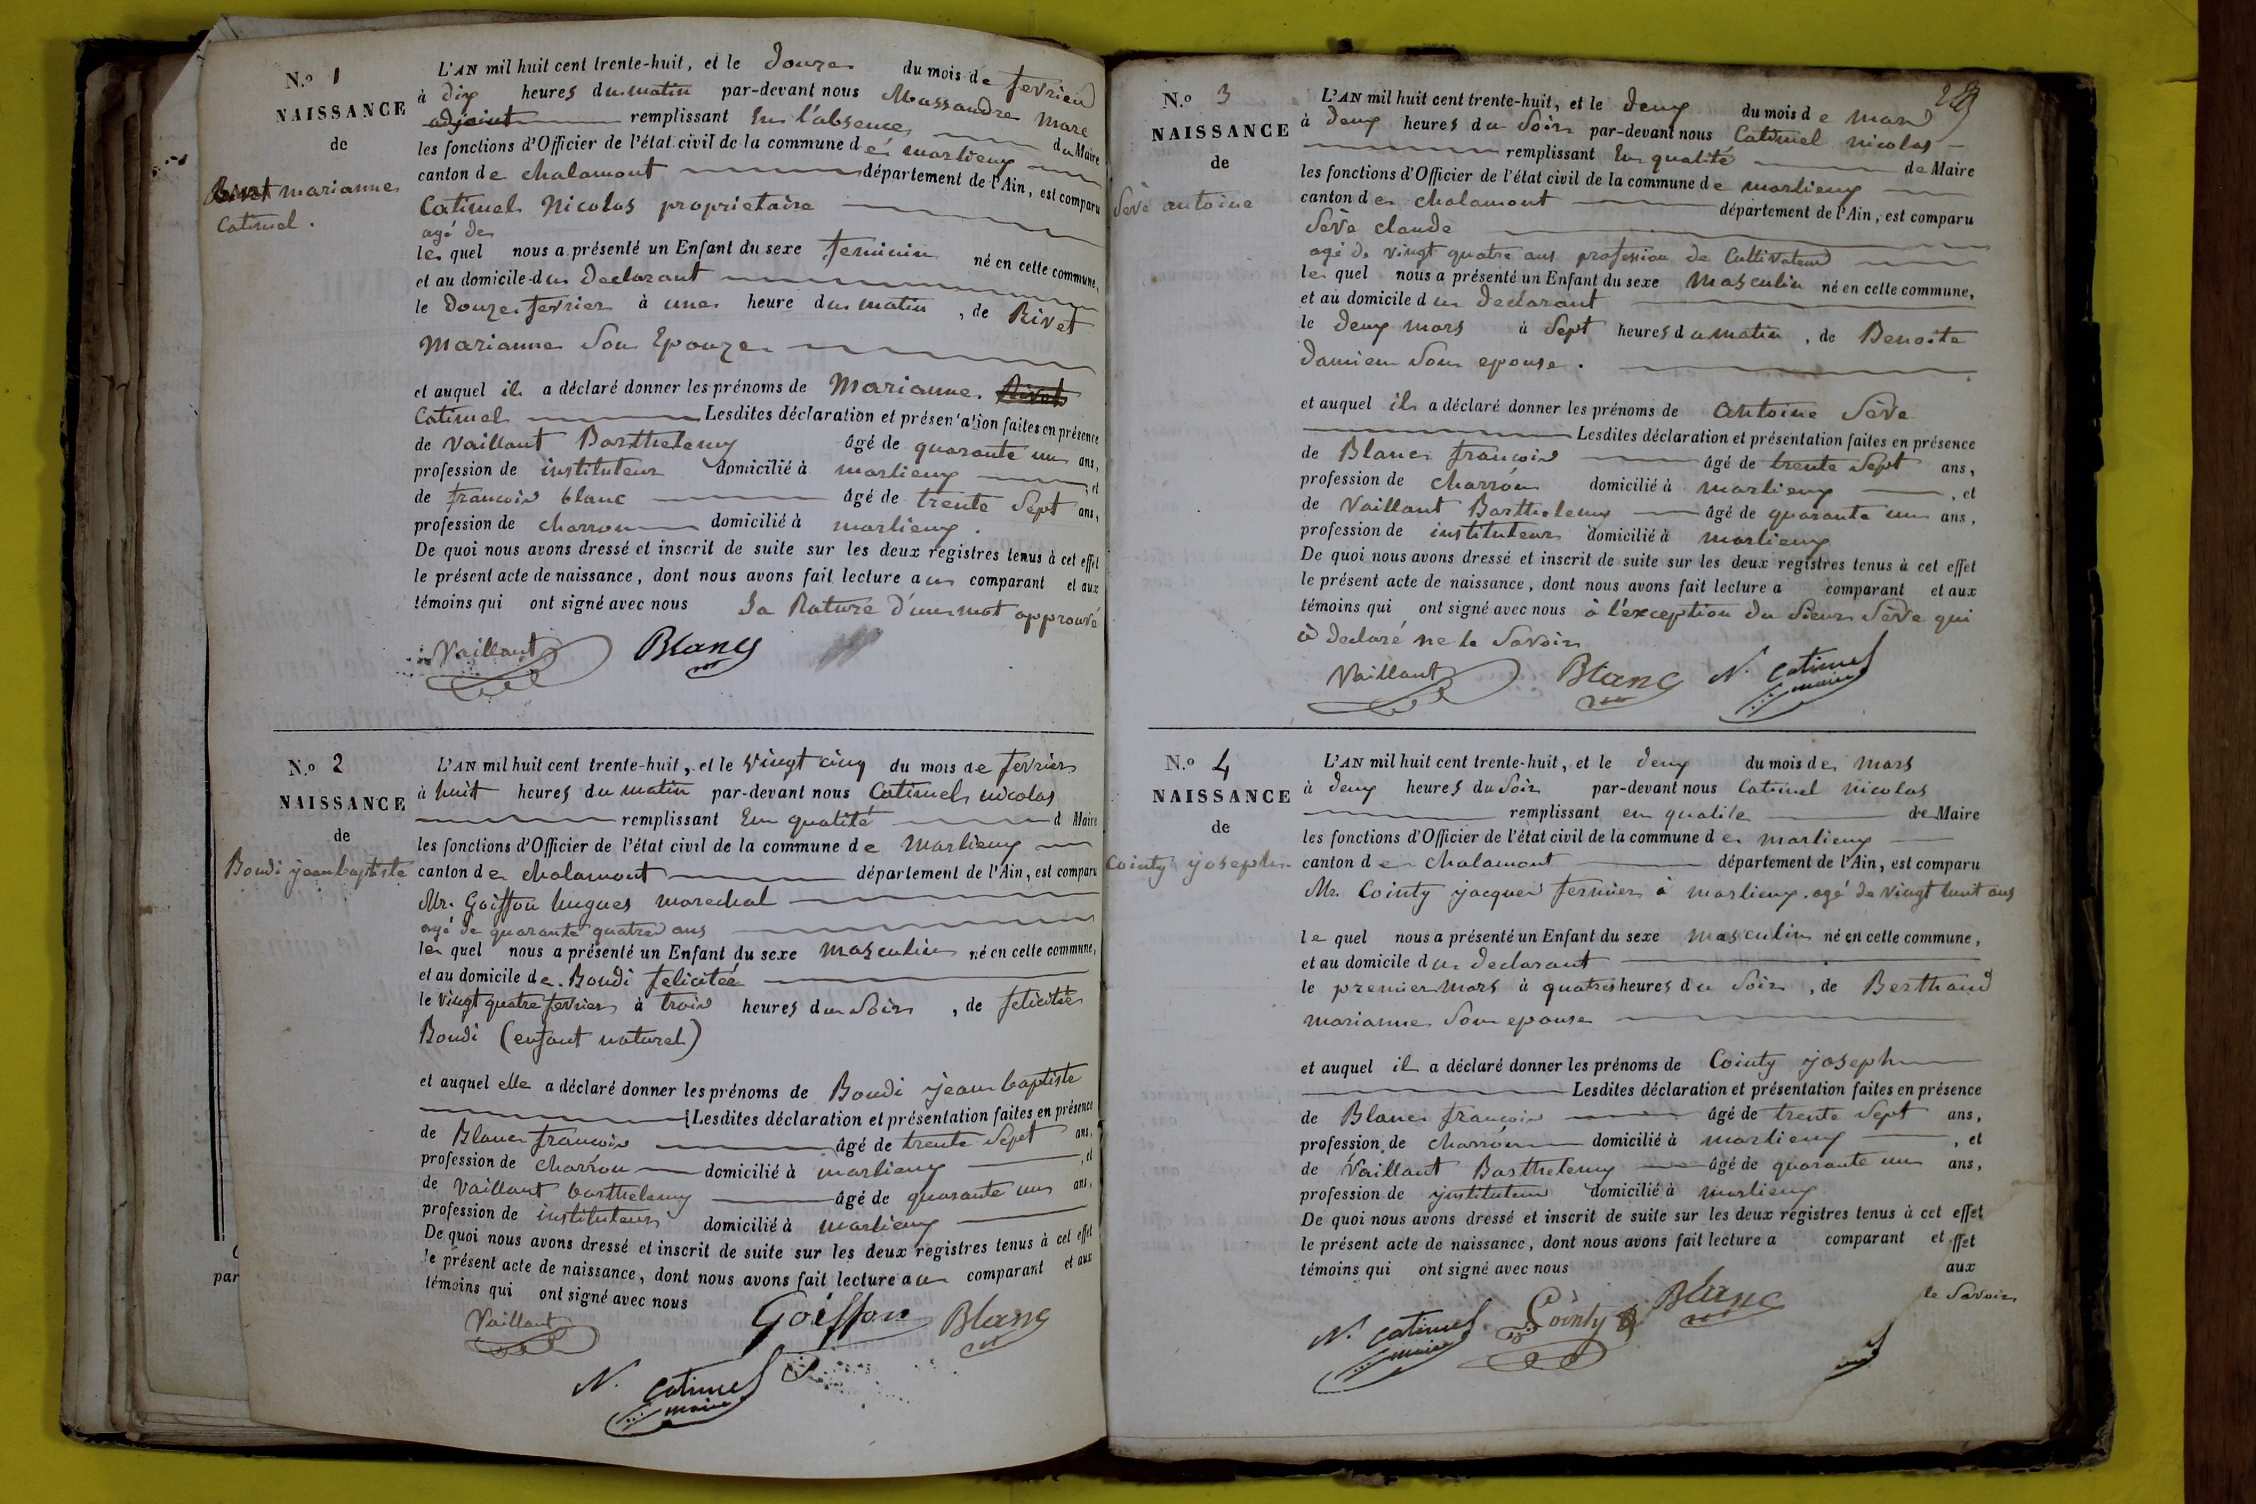 N.o 1
NAISSANCE
de
Rivet marianne
Catimel.
L'AN mil huit cent trente-huit, et le douze du mois de fevrier
à dix heures du matin par-devant nous Massandre Marc
adjoint remplissant En l'absence du Maire
les fonctions d'Officier de l'état civil de la commune de marlieux
canton de chalamont département de l'Ain, est comparu
Catimel Nicolas proprietaire
agé de
le quel nous a présenté un Enfant du sexe feminin né en cette commune,
et au domicile du declarant
le douze fevrier à une heure du matin, de Rivet
Marianne Son Epouze
et auquel il a déclaré donner les prénoms de Marianne. Rivet
Catimel Lesdites déclaration et présentation faites en présence
de Vaillant Barthelemy âgé de quarante un ans,
profession de instituteur domicilié à marlieux, et
de francois blanc âgé de trente Sept ans,
profession de charron domicilié à marlieux.
De quoi nous avons dressé et inscrit de suite sur les deux registres tenus à cet effet
le présent acte de naissance, dont nous avons fait lecture au comparant et aux
témoins qui ont signé avec nous la Rature d'un mot approuvé
Vaillant Blanc
N.o 2
NAISSANCE
de
Boudi jean baptiste
L'AN mil huit cent trente-huit, et le vingt cinq du mois de fevrier
à huit heures du matin par-devant nous Catimel nicolas
remplissant En qualité d Maire
les fonctions d'Officier de l'état civil de la commune de Marlieux
canton de chalamont département de l'Ain, est comparu
Mr. Goiffon hugues marechal
agé de quarante quatre ans
le quel nous a présenté un Enfant du sexe masculin né en cette commune,
et au domicile de Boudi felicitée
le vingt quatre fevrier à trois heures du Soir, de felicitée
Boudi (enfant naturel)
et auquel elle a déclaré donner les prénoms de Boudi jean baptiste
Lesdites déclaration et présentation faites en présence
de Blanc francois âgé de trente Sept ans,
profession de charron domicilié à marlieux, et
de Vaillant barthelemy âgé de quarante un ans,
profession de instituteur domicilié à marlieux
De quoi nous avons dressé et inscrit de suite sur les deux registres tenus à cet effet
le présent acte de naissance, dont nous avons fait lecture au comparant et aux
témoins qui ont signé avec nous
Vaillant Goiffon Blanc
N. Catimel
maire
par
N.o 3
NAISSANCE
de
Sève antoine
L'AN mil huit cent trente-huit, et le deux du mois de mars
à deux heures du Soir par-devant nous Catimel nicolas
remplissant En qualité de Maire
les fonctions d'Officier de l'état civil de la commune de marlieux
canton de chalamont département de l'Ain, est comparu
Sève claude
agé de vingt quatre ans profession de Cultivateur
le quel nous a présenté un Enfant du sexe Masculin né en cette commune,
et au domicile du declarant
le deux mars à Sept heures du matin, de Benoite
damien Son epouse.
et auquel il a déclaré donner les prénoms de Antoine Sève
Lesdites déclaration et présentation faites en présence
de Blanc francois âgé de trente Sept ans,
profession de charron domicilié à marlieux, et
de Vaillant Barthelemy âgé de quarante un ans,
profession de instituteur domicilié à marlieux
De quoi nous avons dressé et inscrit de suite sur les deux registres tenus à cet effet
le présent acte de naissance, dont nous avons fait lecture a comparant et aux
témoins qui ont signé avec nous à l'exception du Sieur Sève qui
à declaré ne le Savoir
Vaillant Blanc N. Catimel
maire
N.o 4
NAISSANCE
de
Cointy joseph
L'AN mil huit cent trente-huit, et le deux du mois de mars
à deux heures du Soir par-devant nous Catimel nicolas
remplissant en qualité de Maire
les fonctions d'Officier de l'état civil de la commune de marlieux
canton de chalamont département de l'Ain, est comparu
Mr. Cointy jacques fermier à marlieux. agé de vingt huit ans
le quel nous a présenté un Enfant du sexe masculin né en cette commune,
et au domicile du declarant
le premier mars à quatre heures du Soir, de Berthaud
marianne Son epouse
et auquel il a déclaré donner les prénoms de Cointy joseph
Lesdites déclaration et présentation faites en présence
de Blanc francois âgé de trente Sept ans,
profession de charron domicilié à marlieux, et
de Vaillant Barthelemy âgé de quarante un ans,
profession de jnstituteur domicilié à marlieux
De quoi nous avons dressé et inscrit de suite sur les deux registres tenus à cet effet
le présent acte de naissance, dont nous avons fait lecture a comparant et effet
témoins qui ont signé avec nous aux
le Savoir
N. Catimel Cointy Blanc
maire